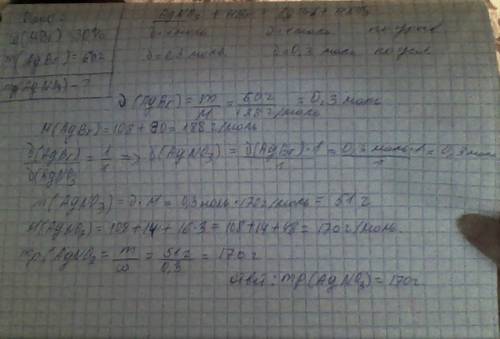 Дано:
ω(HBr) = 30%
m(AgBr) = 60г
mp(AgNO₃) - ?
AgNO₃ + HBr = AgBr + HNO₃
ν = 0,3 моль ν = 0,3 моль по усл
ν(AgBr) = m/M = 60г/188г/моль = 0,3 моль
M(AgBr) = 108 + 80 = 188 г/моль
ν(AgBr)/ν(AgNO₃ = 1/1 => ν(AgNO₃) = ν(AgBr)·1/1 = 0,3 моль·1/1 = 0,3 моль
m(AgNO₃) = ν·M = 0,3 моль·170г/моль = 51 г
M(AgNO₃) = 108 + 14 + 16·3 = 108 + 14 + 48 = 170 г/моль.
mp.(AgNO₃ = m/ω = 51г/0,3 = 170г
ответ: mp.(AgNO₃) = 170г.